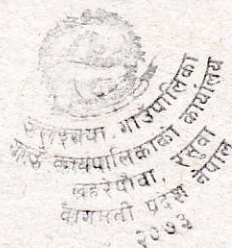 गाउँपालिका
गाउँ कार्यपालिकाको कार्यालय
लहरेपौवा, रसुवा
वागमती प्रदेश नेपाल
२०७३